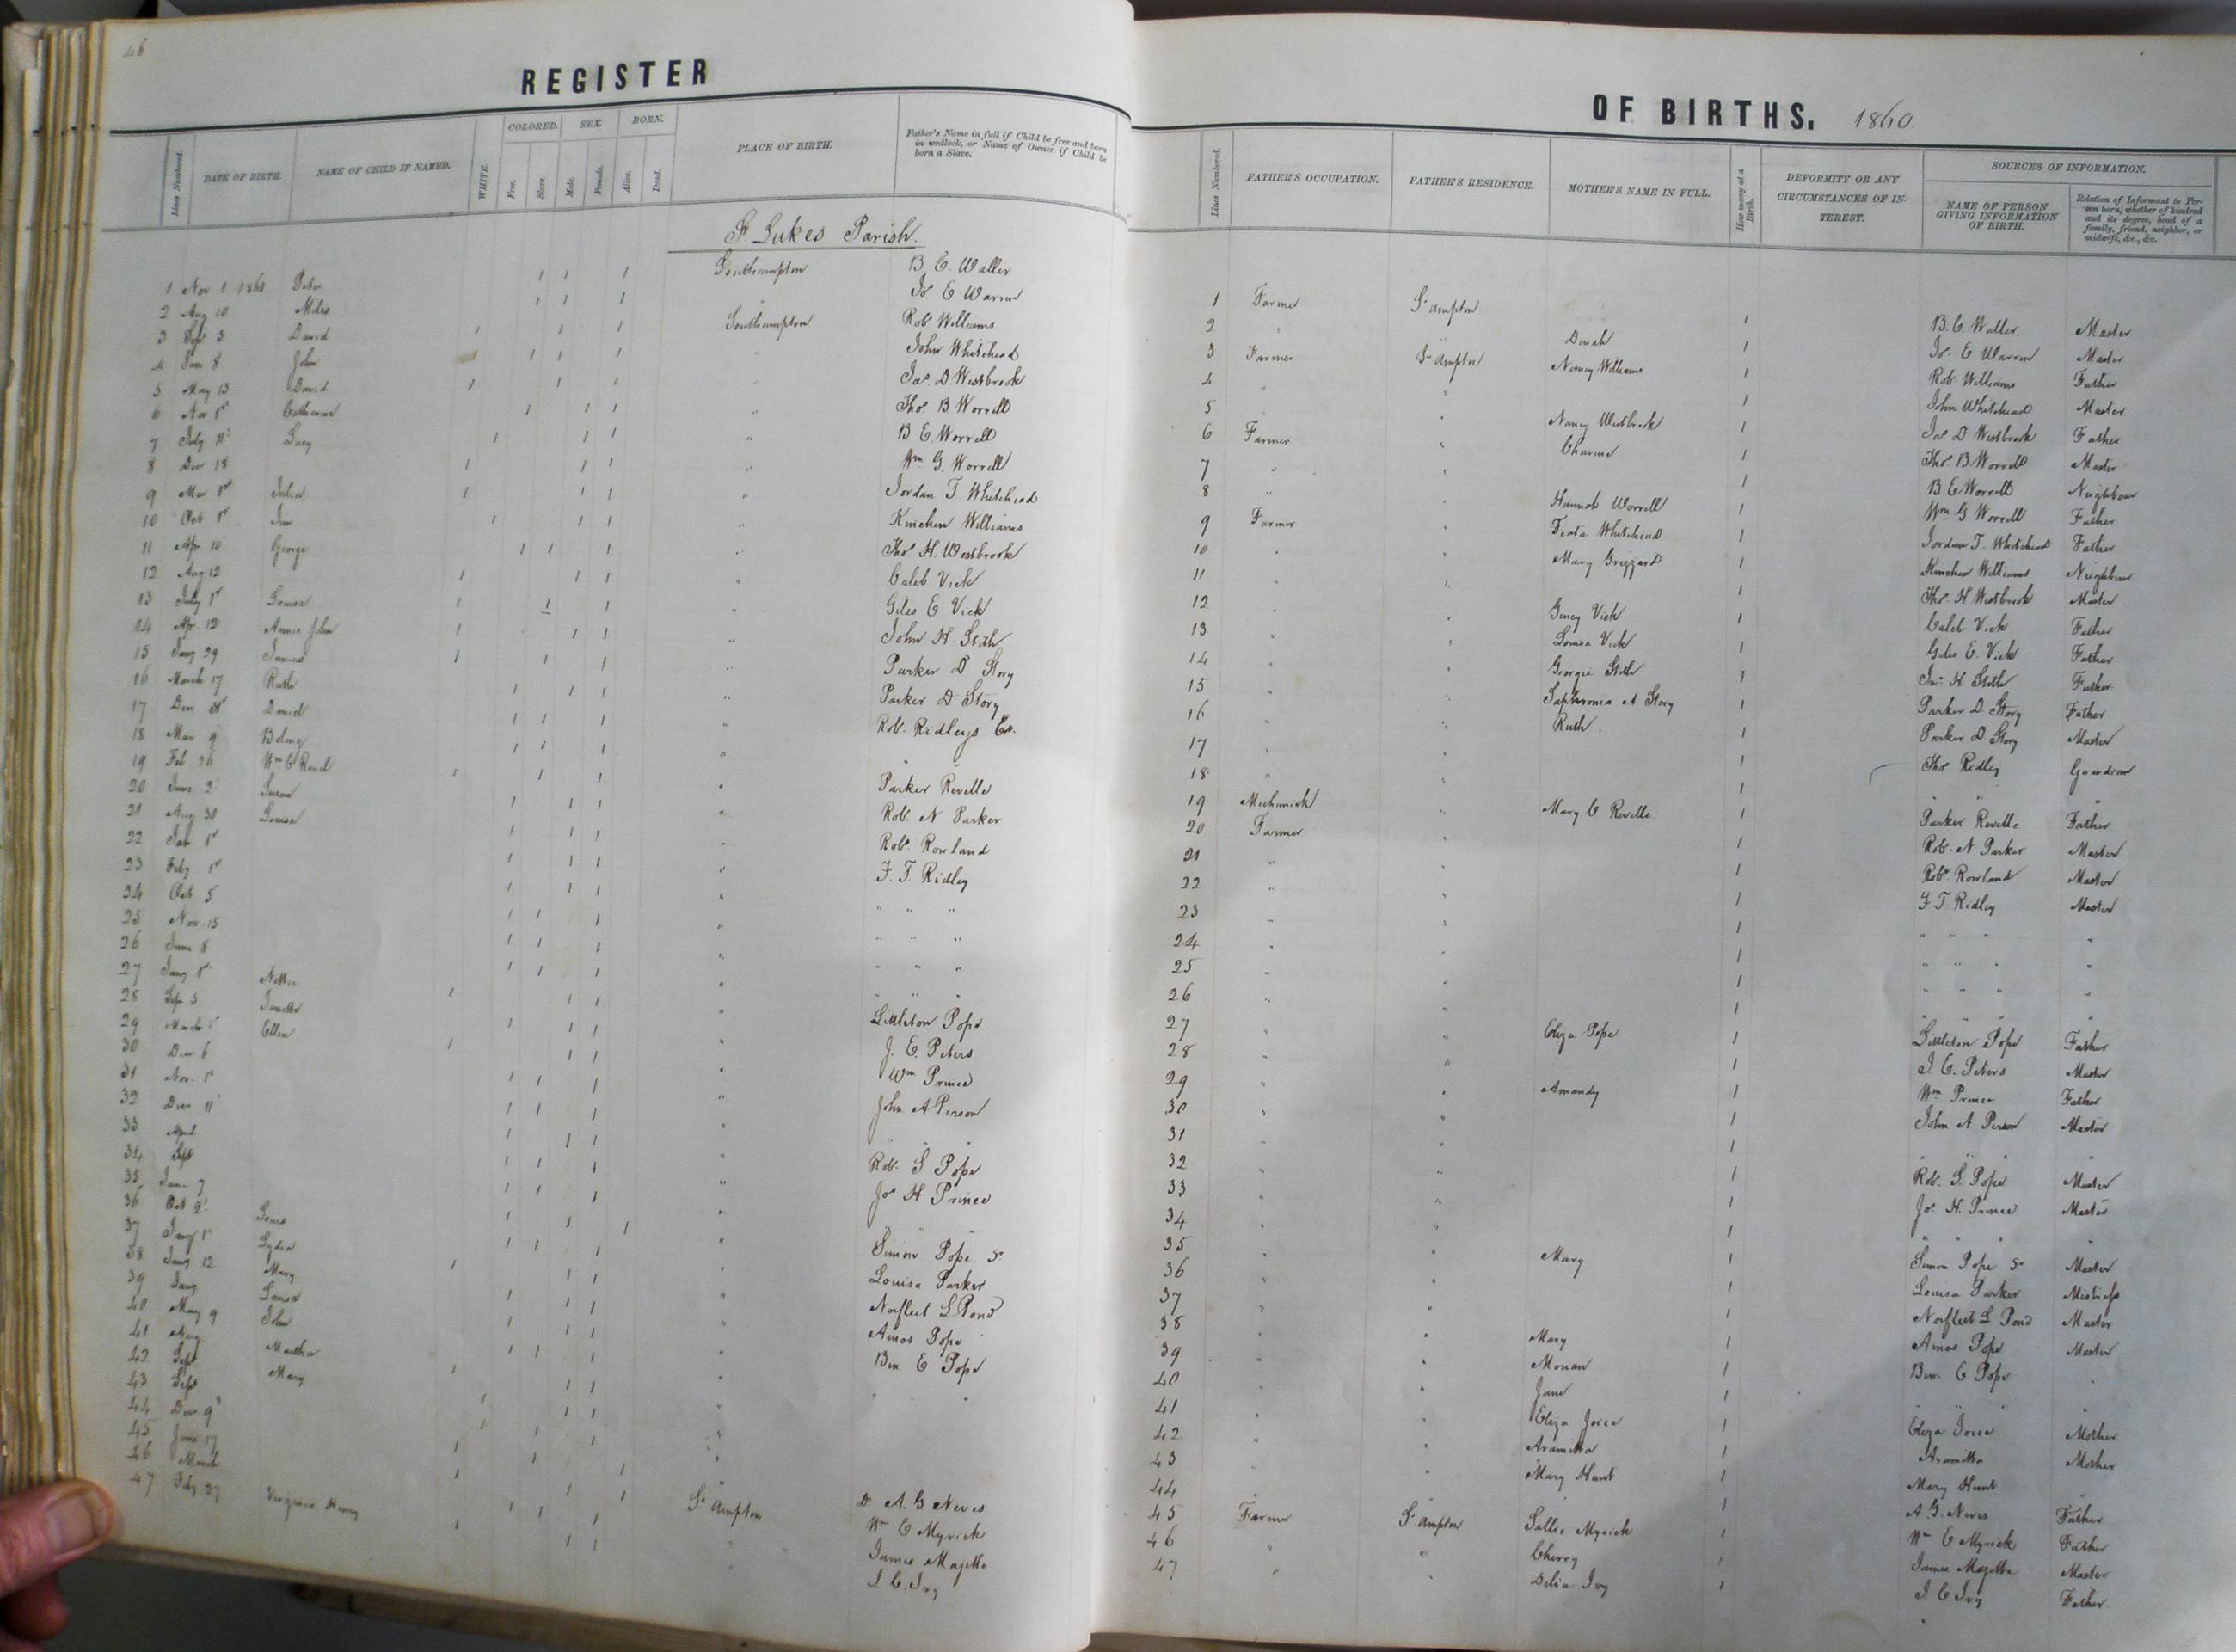 46
REGISTER
Lines Numbered.
DATE OF BIRTH.
NAME OF CHILD IF NAMED.
WHITE.
COLORED.
Free.
Slave.
SEX.
Male.
Female.
BORN.
Alive.
Dead.
PLACE OF BIRTH.
Father's Name in full if Child be free and born
in wedlock, or Name of Owner if Child be
born a Slave.
St. Lukes Parish.
1 Nov 1 1860 Peter Southampton B. E. Waller
2 Aug 10 Miles " Jo. E Warren
3 Sep 3 David Southampton Rob Williams
4 Jan 8 John " John Whitehead
5 May 13 David " Jas D. Westbrook
6 Nov 1st Catharine " Thos B. Worrell
7 July Lucy " B E. Worrell
8 Dec 18 " Wm G. Worrell
9 Mar 1st Julia " Jordan T Whitehead
10 Oct 1st " Kinchen Williams
11 Apr 10 George " Thos H. Westbrook
12 Aug 12 " Caleb Vick
13 July 1st Louisa " Giles E Vick
14 Apr 12 Annie John " John H Stith
15 Jany 29 " Parker D Story
16 March 17 Ruth " Parker D Story
17 Dec Daniel " Rob. Ridleys Es.
18 Mar 9 " "
19 Feb 26 Wm C Revel " Parker Revelle
20 June 2 Susan " Rob. N Parker
21 Aug 30 Louisa " Robt. Rowland
22 Jan 1st " F. T Ridley
23 Feby 1st " " " "
24 Oct 5 " " " "
25 Nov. 15 " " " "
26 June 8 " " " "
27 Jany 1st Nettie " Littleton Pope
28 Sep 5 " J. E. Peters
29 March Ellen " Wm Prince
30 Dec 6 " John A Person
31 Nov. 1st " " "
32 Dec 11 " Rob. S Pope
33 April " Jos H Prince
34 Sept " " "
35 June 7 " Simon Pope Sr
36 Oct 2 Louis " Louisa Parker
37 Jany 1st Lydia " Norfleet L Pond
38 Jany 12 Mary " Amos Pope
39 Jany Louisa " Ben E Pope
40 May 9 John " " "
41 Aug Martha
42 Sept Mary
43 Sept
44 Dec 9 St Ampton Dr A. G Neves
45 June 17 " Wm E Myrick
46 March " James Magette
47 Feby 27 Virginia Henry " J. C. Ivy
OF BIRTHS. 1860.
Lines Numbered.
FATHER'S OCCUPATION.
FATHER'S RESIDENCE.
MOTHER'S NAME IN FULL.
How many at a Birth.
DEFORMITY OR ANY
CIRCUMSTANCES OF IN-
TEREST.
SOURCES OF INFORMATION.
NAME OF PERSON
GIVING INFORMATION
OF BIRTH.
Relation of Informant to Per-
son born, whether of kindred
and its degree, head of a
family, friend, neighbor, or
midwife, &c., &c.
1 Farmer St Ampton 1 B. E. Waller Master
2 " Dinah 1 Jo. E Warren Master
3 Farmer St Ampton Nancy Williams 1 Rob Williams Father
4 " " 1 John Whitehead Master
5 " Nancy Westbrook 1 Jas D Westbrook Father
6 Farmer " Charine 1 Thos B Worrell Master
7 " " 1 B E Worrell Neighbour
8 " " Hannah Worrell 1 Wm G Worrell Father
9 Farmer " Whitehead 1 Jordan T. Whitehead Father
10 " " Mary Grizzard 1 Kinchen Williams Neighbour
11 " " 1 Thos. H Westbrook Master
12 " " Vick 1 Caleb Vick Father
13 " " Louisa Vick 1 Giles E. Vick Father
14 " " Georgie Stith 1 Jno H Stith Father
15 " " Saphronia A Story 1 Parker D. Story Father
16 " " Ruth 1 Parker D Story Master
17 " " 1 Thos Ridley Guardian
18 " " 1 " " "
19 Mechanick " Mary C Revelle 1 Parker Revelle Father
20 Farmer " 1 Rob. N Parker Master
21 " " 1 Robt Rowland Master
22 " " 1 F. T. Ridley Master
23 " " 1 " " " "
24 " " 1 " " " "
25 " " 1 " " " "
26 " " 1 " " "
27 " " Eliza Pope 1 Littleton Pope Father
28 " " 1 J. E. Peters Master
29 " " Amandy 1 Wm Prince Father
30 " " 1 John A Person Master
31 " " 1 " " "
32 " " 1 Rob. S. Pope Master
33 " " 1 Jos. H. Prince Master
34 " " 1 " " "
35 " " Mary 1 Simon Pope Sr Master
36 " " 1 Louisa Parker Mistress
37 " " 1 Norfleet L Pond Master
38 " " Mary 1 Amos Pope Master
39 " " Monan 1 Ben. E Pope "
40 " " Jane 1 " " "
41 " " Eliza Joice 1 Eliza Joice Mother
42 " " Aramitta 1 Aramitta Mother
43 " " Mary Hunt 1 Mary Hunt "
44 " " 1 A. G. Neves Father
45 Farmer St Ampton Sallie Myrick 1 Wm E Myrick Father
46 " " Cherry 1 James Magette Master
47 " " Delia Ivy 1 J C Ivy Father.